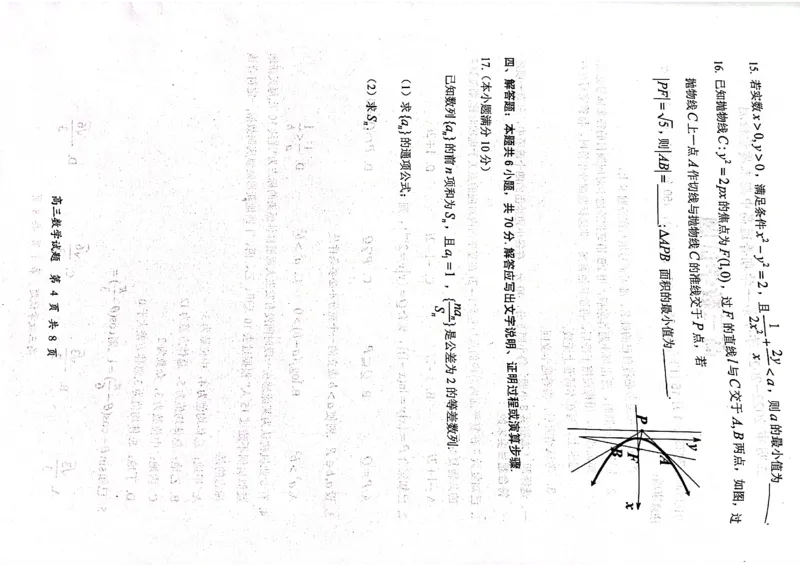 15. 若实数x>0,y>0，满足条件x²-y²=2，且1/(2x²)+2y/x<a，则a的最小值为______.
16. 已知抛物线C:y²=2px的焦点为F(1,0)，过F的直线l与C交于A,B两点，如图，过
抛物线C上一点A作切线与抛物线C的准线交于P点，若
|PF|=√5，则|AB|=______;ΔAPB 面积的最小值为______.
y
A
P
F
B
x
四、解答题：本题共6小题，共70分.解答应写出文字说明、证明过程或演算步骤.
17.（本小题满分10分）
已知数列{aₙ}的前n项和为Sₙ，且a₁=1，{naₙ/Sₙ}是公差为2的等差数列.
（1）求{aₙ}的通项公式；
（2）求Sₙ.
高三数学试题 第 4 页 共 8 页